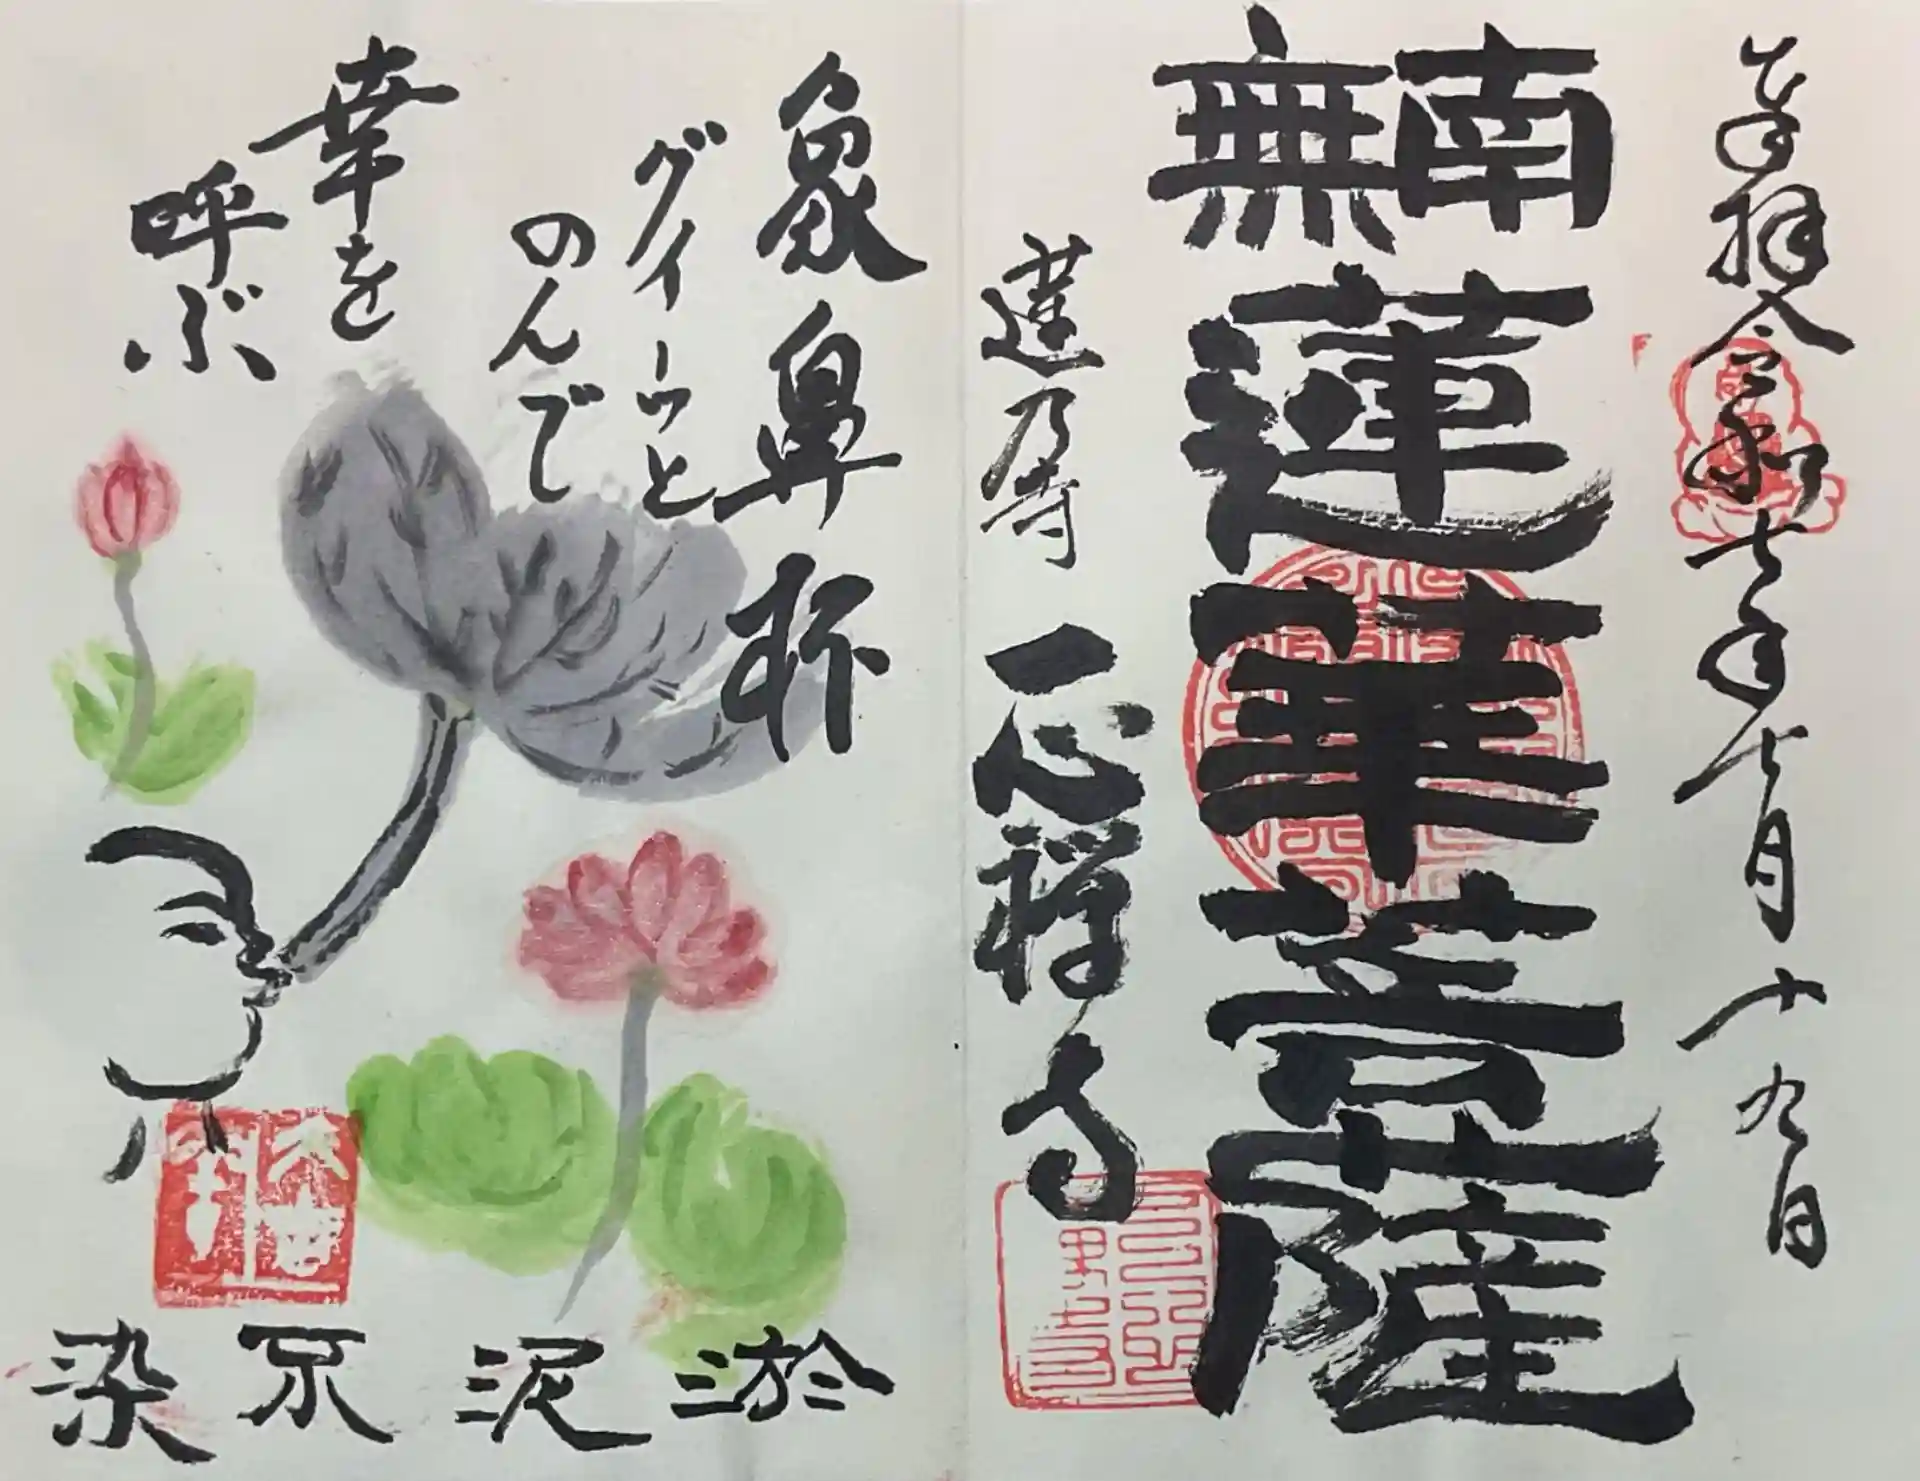 奉拝 令和七年七月十九日
南無蓮華菩薩
蓮乃寺 一心禅寺
象鼻杯
グイーッと
のんで
幸を
呼ぶ
淤泥不染